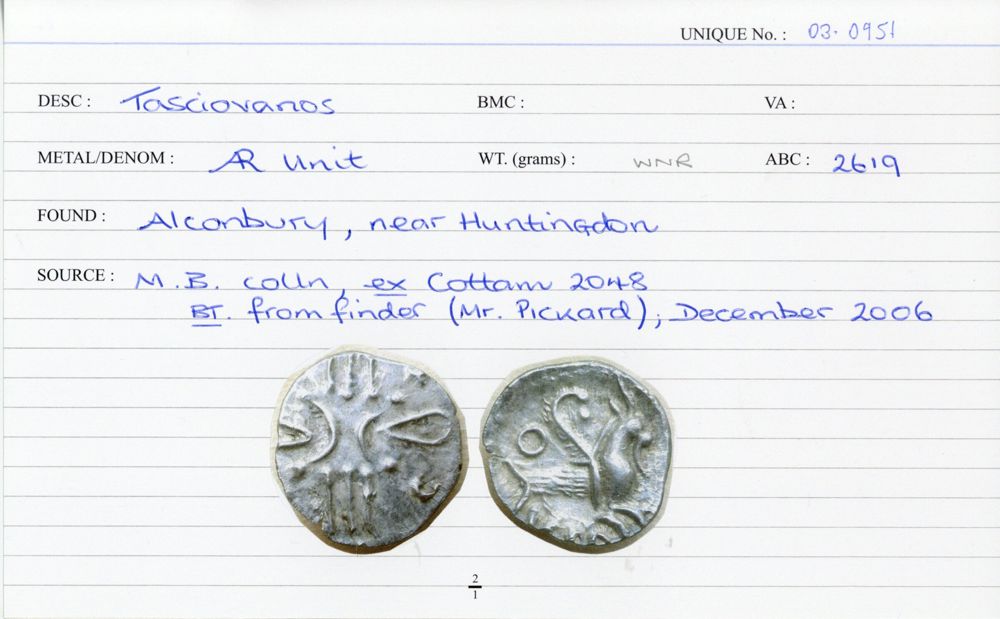 UNIQUE No. : 03.0951
DESC : Tasciovanos BMC : VA :
METAL/DENOM : AR Unit WT. (grams) : WNR ABC : 2619
FOUND : Alconbury, near Huntingdon
SOURCE : M.B. colln, ex Cottam 2048
BT. from finder (Mr. Pickard), December 2006
2
1